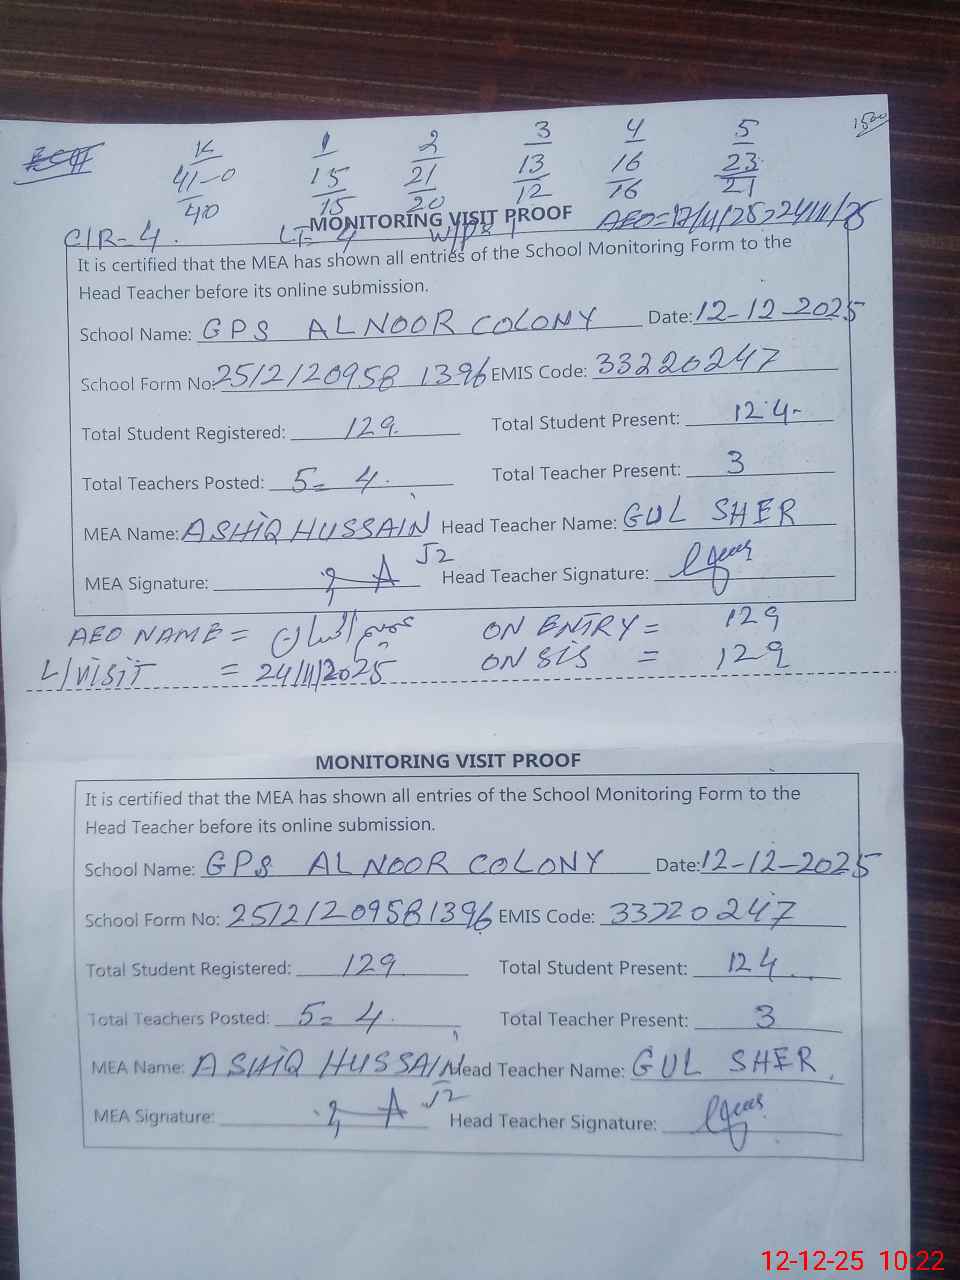 K 1 2 3 4 5 1500
41-0 15 21 13 16 23
40 15 20 12 16 21
MONITORING VISIT PROOF
C/R-4. LT= 4 AEO=17/11/25>24/11/25
It is certified that the MEA has shown all entries of the School Monitoring Form to the
Head Teacher before its online submission.
School Name: GPS ALNOOR COLONY Date: 12-12-2025
School Form No: 25121209581396 EMIS Code: 33220247
Total Student Registered: 129. Total Student Present: 124-
Total Teachers Posted: 5= 4. Total Teacher Present: 3
MEA Name: ASHIQ HUSSAIN Head Teacher Name: GUL SHER
52
MEA Signature: Head Teacher Signature:
AEO NAME = ON ENTRY = 129
L/VISIT = 24/11/2025 ON SIS = 129
MONITORING VISIT PROOF
It is certified that the MEA has shown all entries of the School Monitoring Form to the
Head Teacher before its online submission.
School Name: GPS ALNOOR COLONY Date: 12-12-2025
School Form No: 25121209581396 EMIS Code: 33220247
Total Student Registered: 129 Total Student Present: 124
Total Teachers Posted: 5= 4. Total Teacher Present: 3
MEA Name: ASHIQ HUSSAIN Head Teacher Name: GUL SHER.
52
MEA Signature: Head Teacher Signature:
12-12-25 10:22